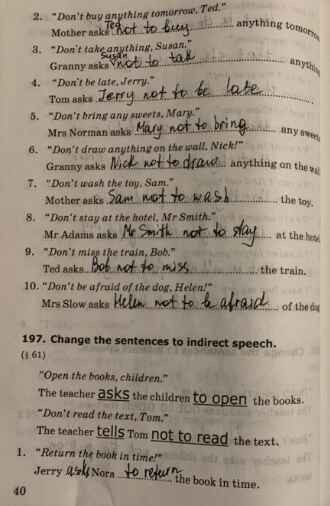 2. "Don't buy anything tomorrow, Ted."
Mother asks Ted not to buy anything tomorrow
3. "Don't take anything, Susan."
Granny asks Susan not to tak anything
4. "Don't be late, Jerry."
Tom asks Jerry not to be late
5. "Don't bring any sweets, Mary."
Mrs Norman asks Mary not to bring any sweets
6. "Don't draw anything on the wall, Nick!"
Granny asks Nick not to draw anything on the wall
7. "Don't wash the toy, Sam."
Mother asks Sam not to wash the toy.
8. "Don't stay at the hotel, Mr Smith."
Mr Adams asks Mr Smith not to stay at the hotel
9. "Don't miss the train, Bob."
Ted asks Bob not to miss the train.
10. "Don't be afraid of the dog, Helen!"
Mrs Slow asks Helen not to be afraid of the dog
197. Change the sentences to indirect speech.
(§ 61)
"Open the books, children."
The teacher asks the children to open the books.
"Don't read the text, Tom."
The teacher tells Tom not to read the text.
1. "Return the book in time!"
Jerry asks Nora to return the book in time.
40